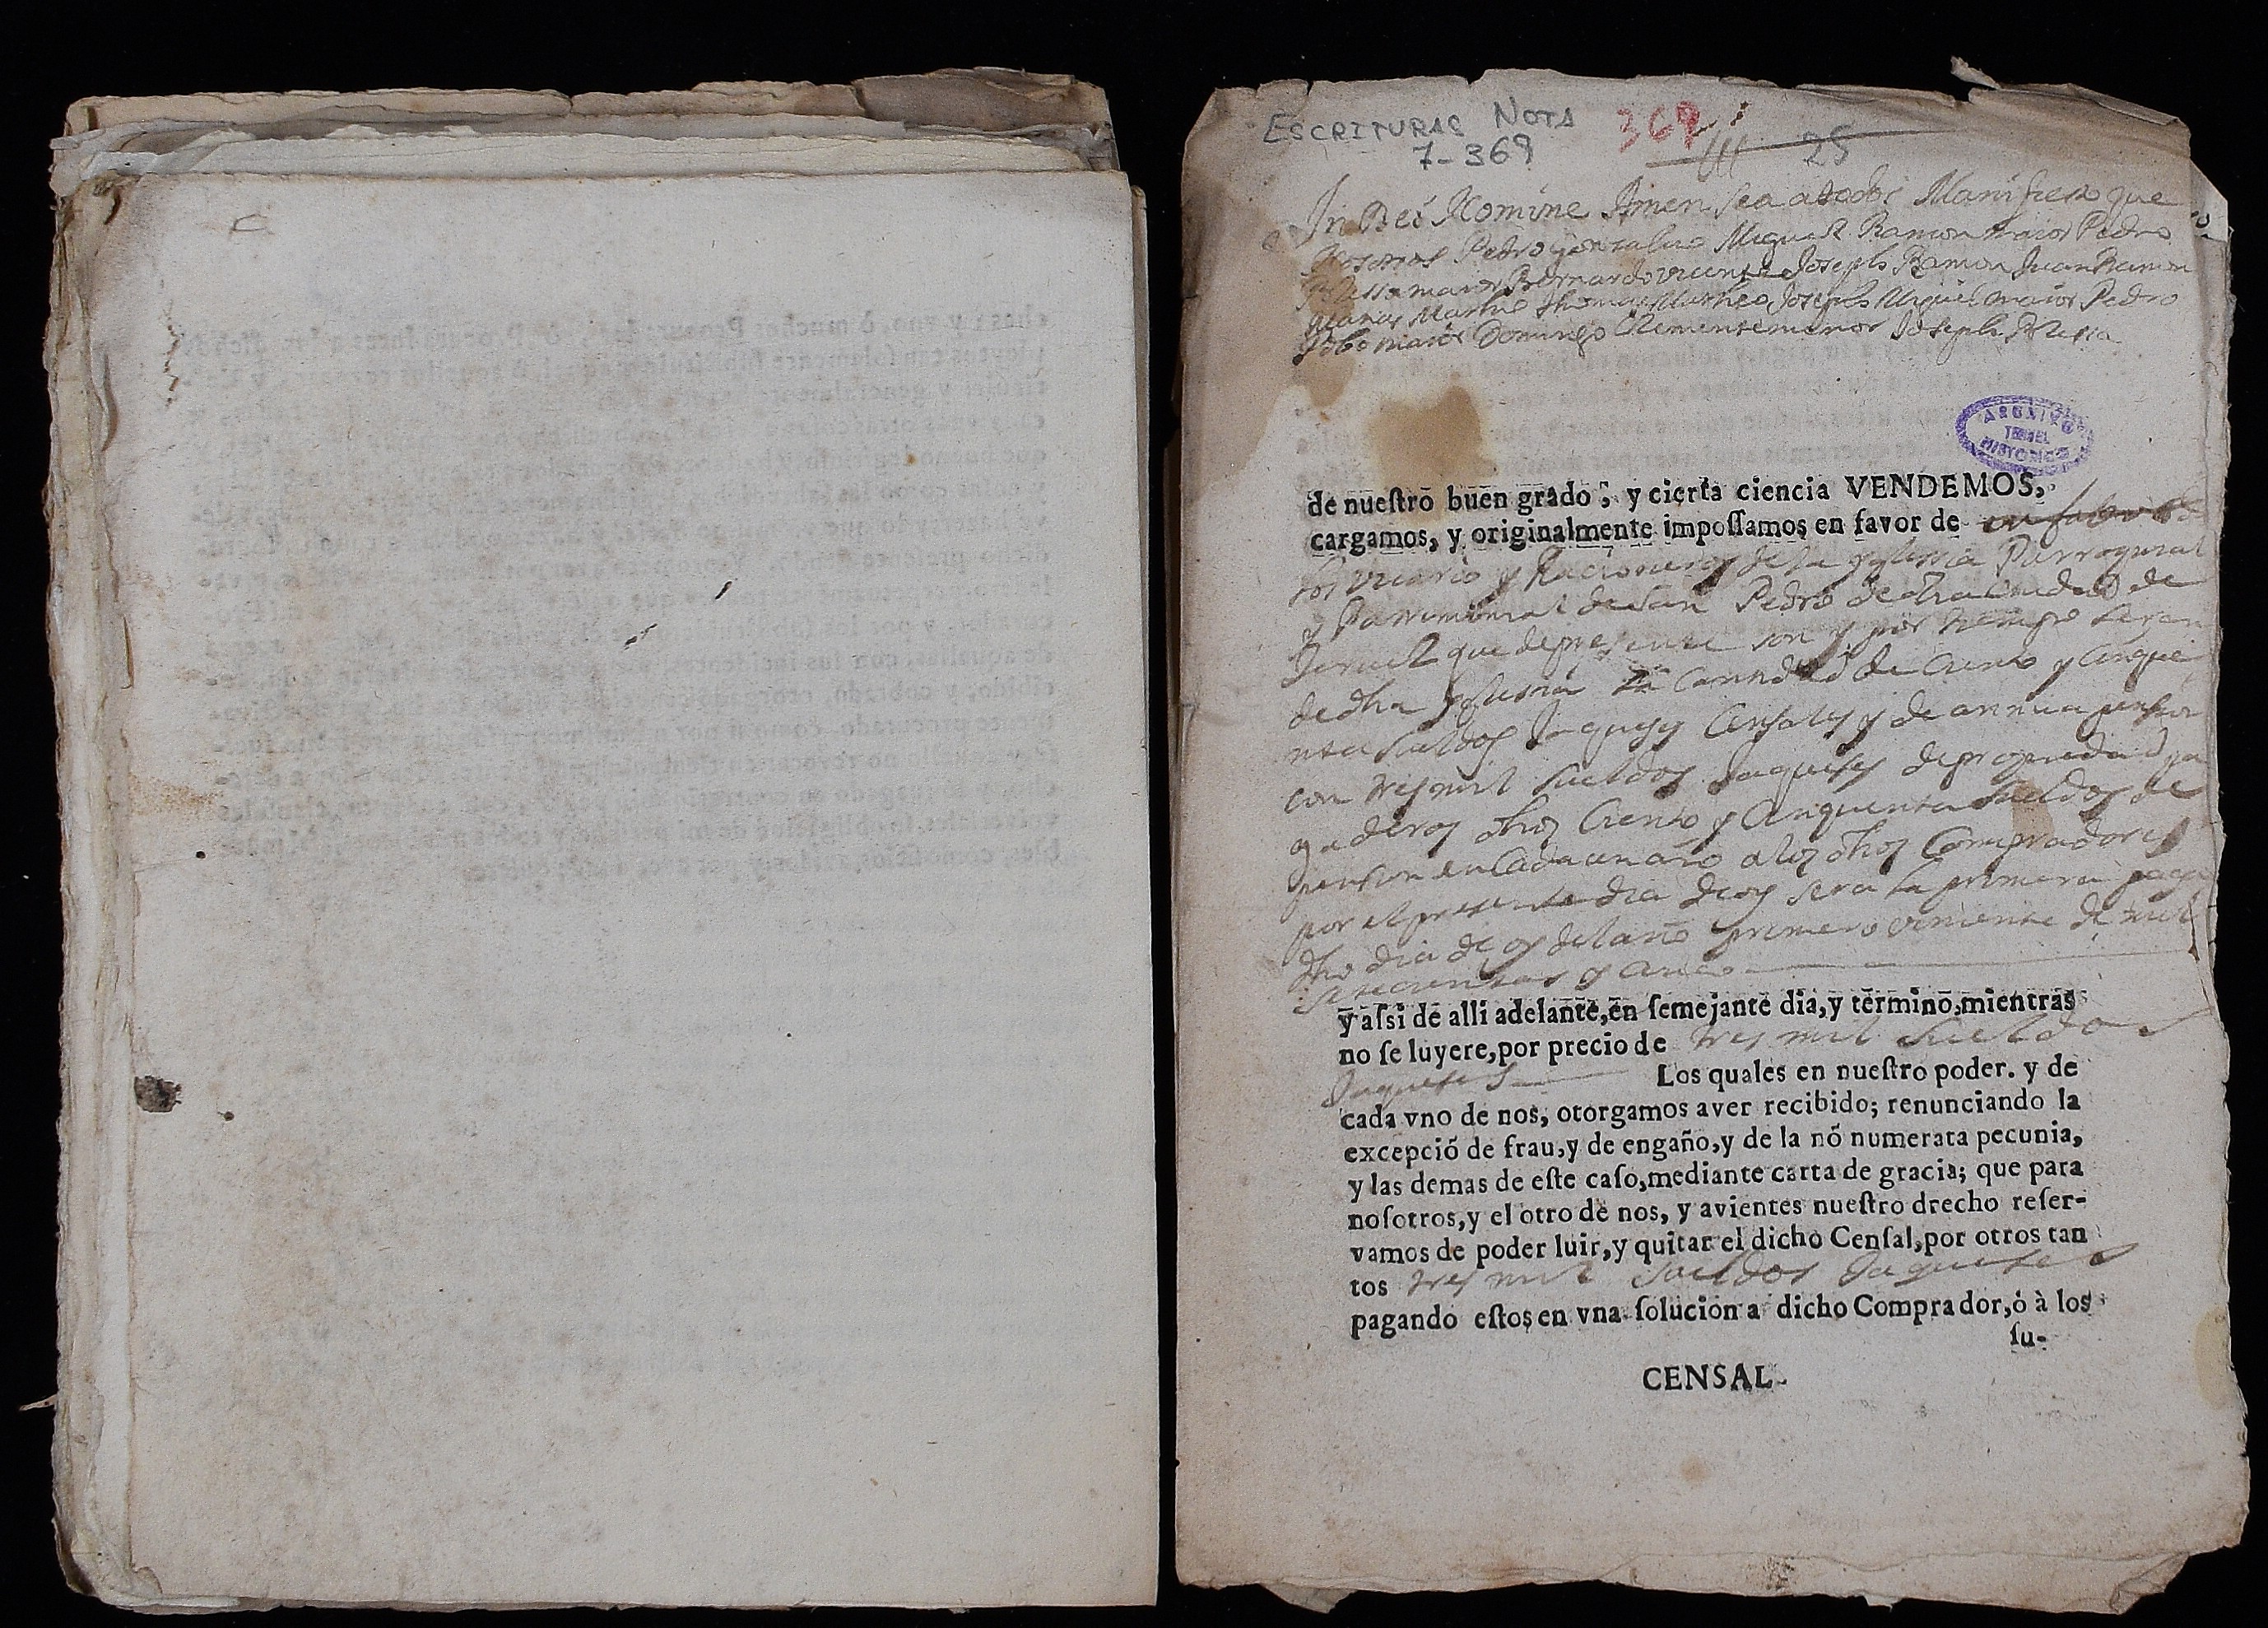 ESCRITURAS NOTA 369
7-369 25
In Dei Nomine Amen Sea atodos Manifiesto que
Nosotros Pedro Gonzalvo Miguel Ramon maior Pedro
maior Bernardo Vicente Joseph Ramon Juan Ramon
Thomas Matheo Joseph Miguel maior Pedro
maior Domingo Clemente menor Joseph
ARCHIVO
TERUEL
HISTORICO
de nueſtro buen grado, y cierta ciencia VENDEMOS,
cargamos, y originalmente impoſſamos en favor de
los Vicario y Racioneros de la Yglessia Parroquial
y Patrimonial de San Pedro de dha Ciudad de
Teruel que depresente son y por tiempo seran
de dha Yglessia la Cantidad de Ciento y Cinque
nta sueldos Jaqueses Censales y de annua pension
con tres mil sueldos Jaqueses de propiedad pa
gaderos dhos Ciento y Cinquenta sueldos de
pension en Cada un año a los dhos Compradores
por el presente dia de oy sera la primera paga
dho dia de oy del año primero viniente de mil
setecientos y Cinco
y aſsi de alli adelante, en ſemejante dia, y termino, mientras
no ſe luyere, por precio de tres mil Sueldos
Jaqueses Los quales en nueſtro poder. y de
cada vno de nos, otorgamos aver recibido; renunciando la
excepció de frau, y de engaño, y de la nó numerata pecunia,
y las demas de eſte caſo, mediante carta de gracia; que para
noſotros, y el otro de nos, y avientes nueſtro drecho reſer-
vamos de poder luir, y quitar el dicho Cenſal, por otros tan
tos tres mil Sueldos Jaqueses
pagando eſtos en vna ſolucion a dicho Comprador, ó à los
ſu-
CENSAL.